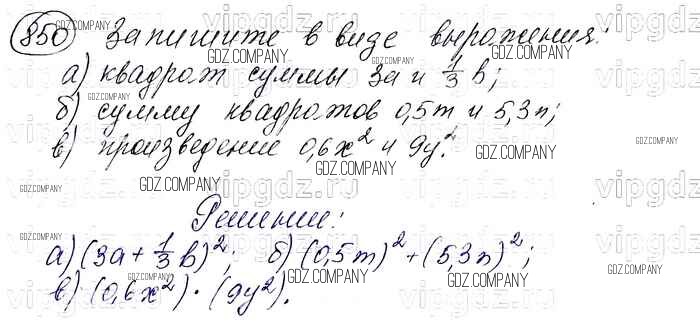 850 Запишите в виде выражения:
а) квадрат суммы 3a и 1/3 b;
б) сумму квадратов 0,5m и 5,3n;
в) произведение 0,6x² и 9y².
Решение:
а) (3a + 1/3 b)²; б) (0,5m)² + (5,3n)²;
в) (0,6x²) · (9y²).
vipgdz.ru
GDZ.COMPANY